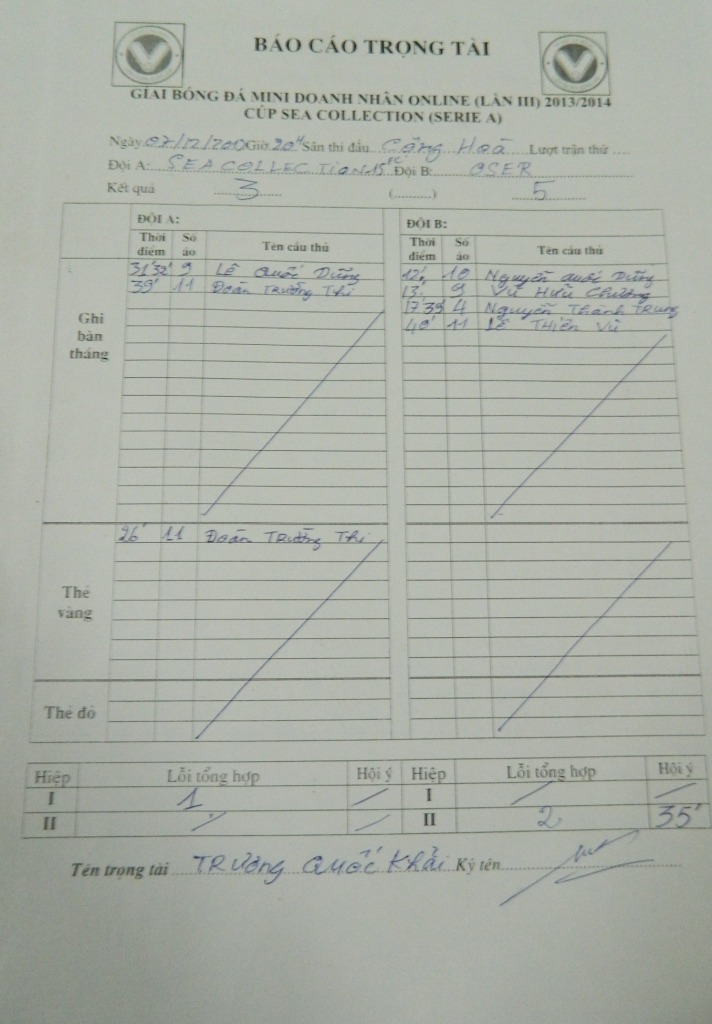 BÁO CÁO TRỌNG TÀI
GIẢI BÓNG ĐÁ MINI DOANH NHÂN ONLINE (LẦN III) 2013/2014
CÚP SEA COLLECTION (SERIE A)
Ngày 07/12/ Giờ 20H Sân thi đấu Cộng Hoà Lượt trận thứ ....
Đội A: SEA COLLECTION FC Đội B: OSER
Kết quả 3 (..........) 5
ĐỘI A: ĐỘI B:
Thời điểm Số áo Tên cầu thủ Thời điểm Số áo Tên cầu thủ
Ghi bàn thắng
31' 32' 9 Lê Quốc Dũng 12' 10 Nguyễn Quốc Dũng
39' 11 Đoàn Trường Thi 13' 9 Vũ Hữu Chương
17' 39' 4 Nguyễn Thành Trung
40' 11 Lê Thiên Vũ
Thẻ vàng
26' 11 Đoàn Trường Thi
Thẻ đỏ
Hiệp Lỗi tổng hợp Hội ý Hiệp Lỗi tổng hợp Hội ý
I 1 / I / /
II / / II 2 35'
Tên trọng tài Trương Quốc Khải Ký tên